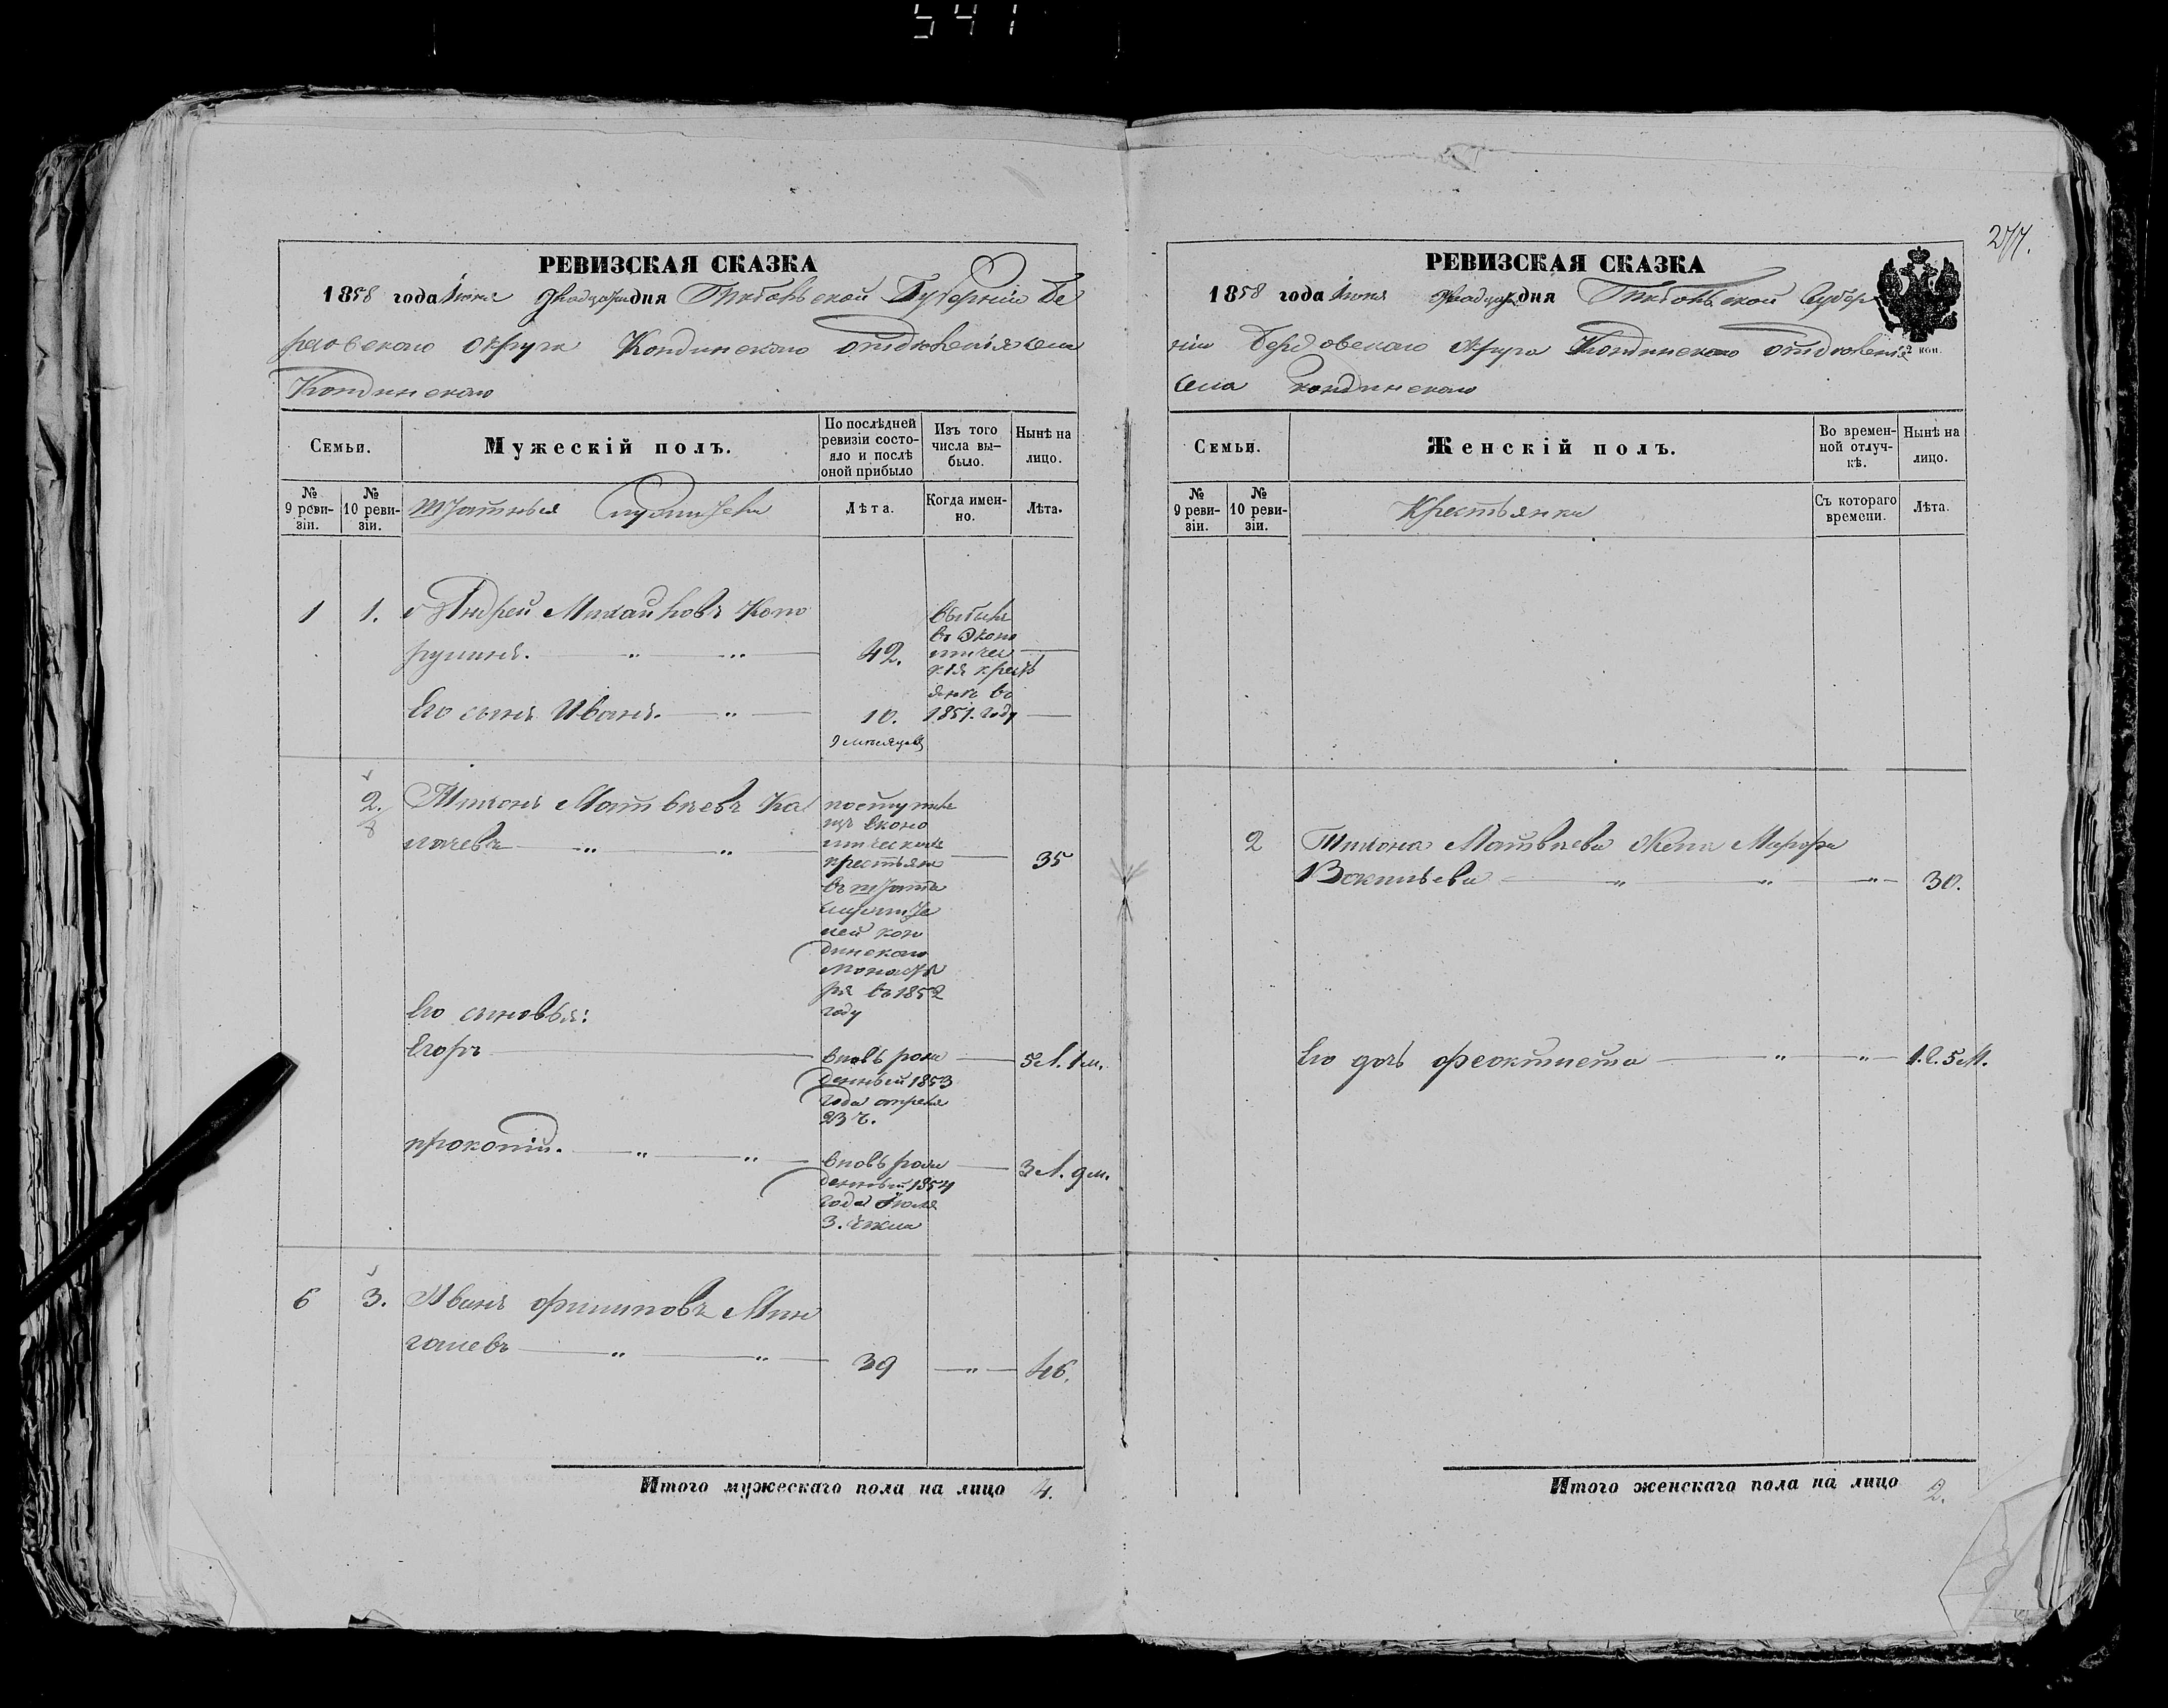 541
277.
РЕВИЗСКАЯ СКАЗКА
1858 года Іюня двадцатаго дня Тобольской Губерніи Бе
резовскаго округа Кондинскаго отдѣленія села
Кондинскаго
Семьи.
Мужескій полъ.
По послѣдней ревизіи состояло и послѣ оной прибыло
Изъ того числа выбыло.
Нынѣ на лицо.
№ 9 ревизіи.
№ 10 ревизіи.
Штатныя Служители
Лѣта.
Когда именно.
Лѣта.
1 1. Андрей Михайловъ
42.
выбыли
въ эконо
мичес
кія крест
яне въ
1851. году
Его сынъ Иванъ.
10.
9 мѣсяцовъ
2. Тихонъ Матвѣевъ Ка
лачевъ
поступилъ
изъ эконо
мическихъ
крестьянъ
въ штатъ
служите
лей кон
динскаго
монасты
ря въ 1852
году
35
Его сыновья:
Егоръ
вновь рож
денный 1853
года апреля
23 ч.
5 л. 1 м.
прокопій.
вновь рож
денный 1854
года Іюля
3. числа
3 л. 9 м.
6 3. Иванъ филиповъ Мин
галевъ
39
46.
Итого мужескаго пола на лицо 4.
РЕВИЗСКАЯ СКАЗКА
1858 года Іюня двадцатаго дня Тобольской Губер
ніи Березовскаго округа Кондинскаго отдѣленія
села кондинскаго
2 коп.
Семьи.
Женскій полъ.
Во временной отлучкѣ.
Нынѣ на лицо.
№ 9 ревизіи.
№ 10 ревизіи.
Крестьянки
Съ котораго времени.
Лѣта.
2 Тихона Матвѣева жена Марфа
Васильева
30.
Его дочь феоктиста
1. л. 5 м.
Итого женскаго пола на лицо 2.